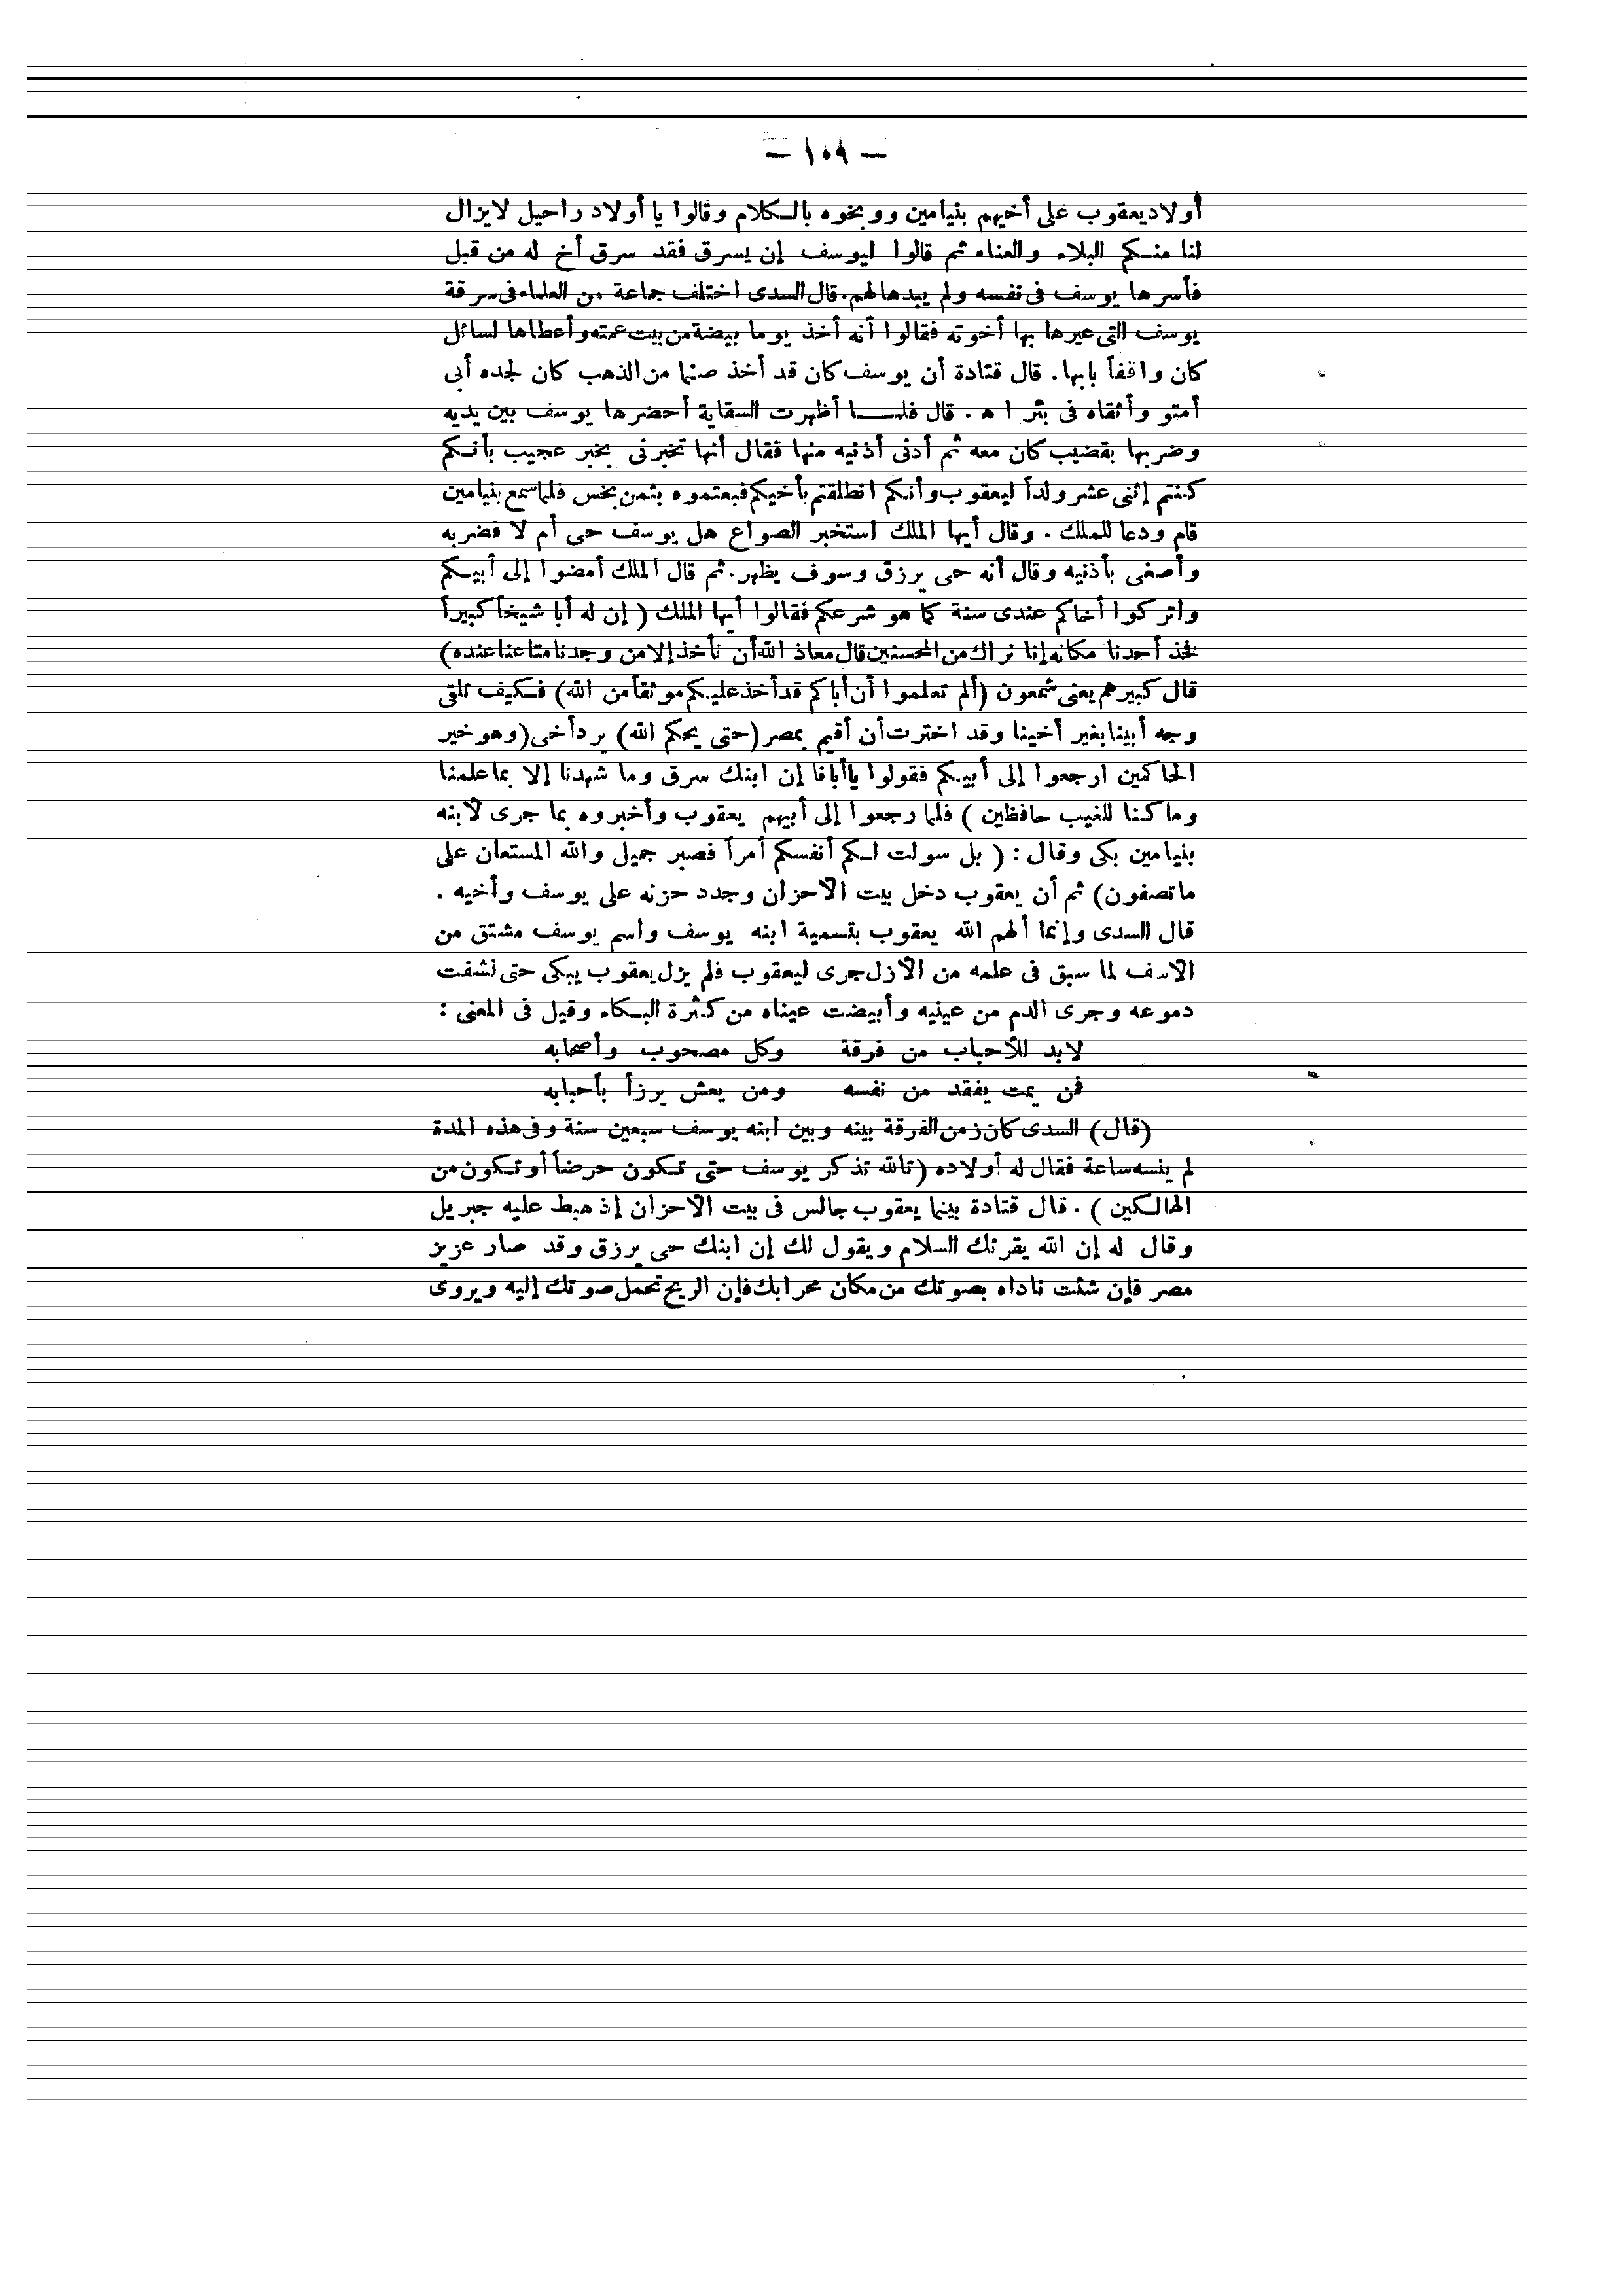 — ١٠٩ —
أولاد يعقوب على أخيهم بنيامين ووبخوه بالكلام وقالوا يا أولاد راحيل لا يزال
لنا منكم البلاء والعناء ثم قالوا ليوسف إن يسرق فقد سرق أخ له من قبل
فأسرها يوسف فى نفسه ولم يبدها لهم. قال السدى اختلف جماعة من العلماء فى سرقة
يوسف التى عيرها بها أخوته فقالوا أنه أخذ يوما بيضة من بيت عمته وأعطاها لسائل
كان واقفاً بابها. قال قتادة أن يوسف كان قد أخذ صنما من الذهب كان لجده أبى
أمتو وأثقاه فى بئر ا ه. قال فلما أظهرت السقاية أحضرها يوسف بين يديه
وضربها بقضيب كان معه ثم أدنى أذنيه منها فقال أنها تخبرنى بخبر عجيب بأنكم
كنتم إثنى عشر ولداً ليعقوب وأنكم انطلقتم بأخيكم فبعتموه بثمن بخس فلما سمع بنيامين
قام ودعا للملك. وقال أيها الملك استخبر الصواع هل يوسف حى أم لا فضربه
وأصغى بأذنيه وقال أنه حى يرزق وسوف يظهر. ثم قال الملك أمضوا إلى أبيكم
واتركوا أخاكم عندى سنة كما هو شرعكم فقالوا أيها الملك ( إن له أبا شيخاً كبيراً
فخذ أحدنا مكانه إنا نراك من المحسنين قال معاذ الله أن نأخذ إلا من وجدنا متاعنا عنده)
قال كبيرهم يعنى شمعون (ألم تعلموا أن أباكم قد أخذ عليكم موثقاً من الله) فكيف نلقى
وجه أبينا بغير أخينا وقد اخترت أن أقيم بمصر (حتى يحكم الله) يرد أخى (وهو خير
الحاكمين ارجعوا إلى أبيكم فقولوا ياأبانا إن ابنك سرق وما شهدنا إلا بما علمنا
وما كنا للغيب حافظين ) فلما رجعوا إلى أبيهم يعقوب وأخبروه بما جرى لابنه
بنيامين بكى وقال : ( بل سولت لكم أنفسكم أمراً فصبر جميل والله المستعان على
ما تصفون) ثم أن يعقوب دخل بيت الأحزان وجدد حزنه على يوسف وأخيه .
قال السدى وإنما ألهم الله يعقوب بتسمية ابنه يوسف واسم يوسف مشتق من
الأسف لما سبق فى علمه من الأزل جرى ليعقوب فلم يزل يعقوب يبكى حتى نشفت
دموعه وجرى الدم من عينيه وأبيضت عيناه من كثرة البكاء وقيل فى المعنى :
لابد للأحباب من فرقة وكل مصحوب وأصحابه
فمن يمت يفقد من نفسه ومن يعش يرزأ بأحبابه
(قال) السدى كان زمن الفرقة بينه وبين ابنه يوسف سبعين سنة وفى هذه المدة
لم ينسه ساعة فقال له أولاده (تالله تذكر يوسف حتى تكون حرضاً أو تكون من
الهالكين ) . قال قتادة بينما يعقوب جالس فى بيت الأحزان إذ هبط عليه جبريل
وقال له إن الله يقرئك السلام ويقول لك إن ابنك حى يرزق وقد صار عزيز
مصر فإن شئت ناداه بصوتك من مكان محرابك فإن الريح تحمل صوتك إليه ويروى